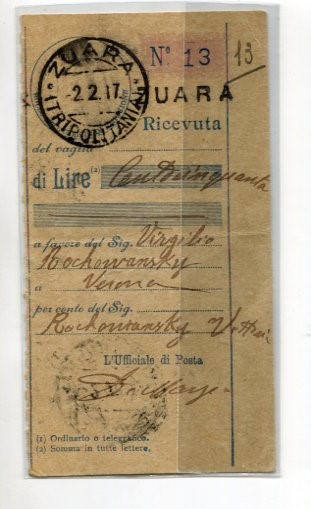 ZUARA
-2.2.17
(TRIPOLITANIA)
Nº 13
13
ZUARA
Ricevuta
del vaglia
di Lire (2) Centocinquanta
a favore del Sig. Virgilio
Rochowansky
a Verona
per conto del Sig.
Rochowansky
L'Ufficiale di Posta
(1) Ordinario o telegrafico.
(2) Somma in tutte lettere.